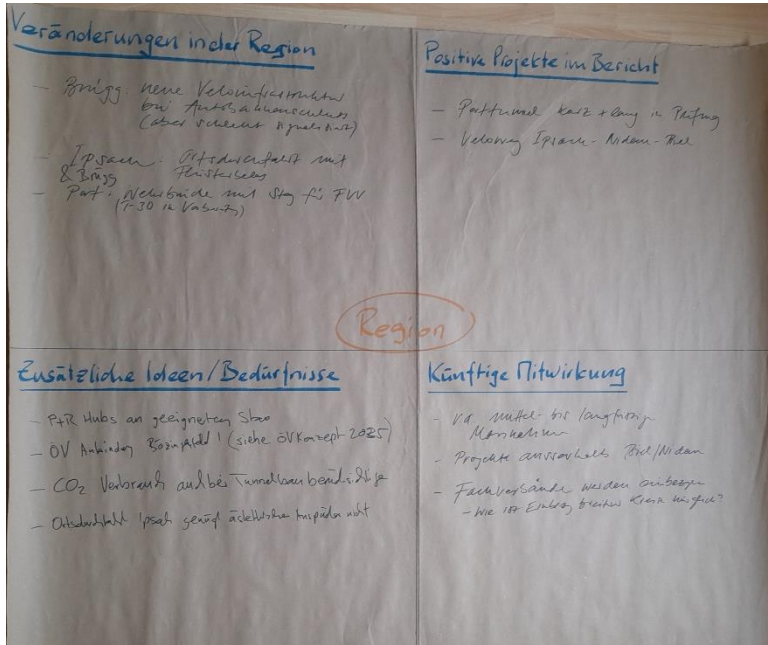 Veränderungen in der Region
- Brügg: neue Veloinfrastruktur
bei Autobahnanschluss
(aber schlecht signalisiert)
- Ipsach Ortsdurchfahrt mit
& Brügg Flüsterbelag
- Port: Wehrbrücke mit Steg für FVV
(T-30 in
Positive Projekte im Bericht
- Porttunnel kurz + lang in Prüfung
- Veloweg Ipsach - Nidau - Biel
Region
Zusätzliche Ideen/Bedürfnisse
- P+R Hubs an geeigneten
- ÖV Anbindung Bözingenfeld! (siehe ÖV Konzept 2025)
- CO2 Verbrauch auch bei Tunnelbau
- Ortsdurchfahrt Ipsach genügt nicht
Künftige Mitwirkung
- v.a. mittel- bis langfristige
Massnahmen
- Projekte ausserhalb Biel/Nidau
- Fachverbände werden einbezogen
- Wie ist Einbezug breiter Kreise möglich?